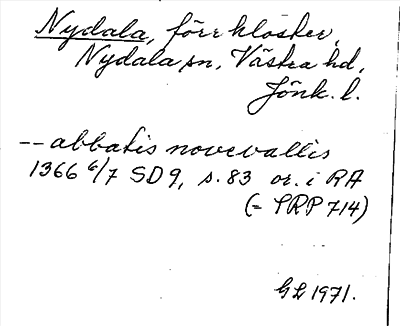 Nydala, förr kloster,
Nydala sn, Västra hd,
Jönk. l.
-- abbatis novevallis
1366 6/7 SD 9, s. 83 or. i RA
(= SRP 714)
GL 1971.